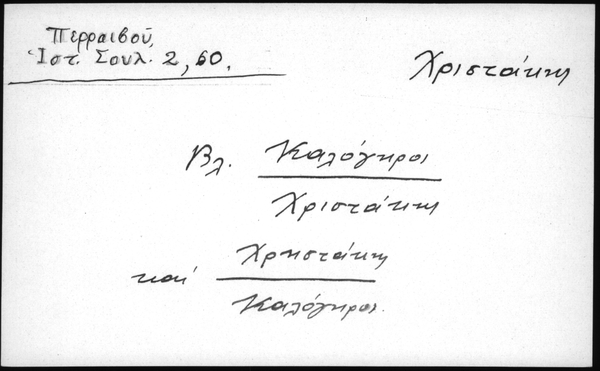 Περραιβοῦ,
Ἱστ. Σουλ. 2, 60.
Χριστάκης
Βλ. Καλόγηροι
Χριστάκης
καί Χρηστάκης
Καλόγηροι.